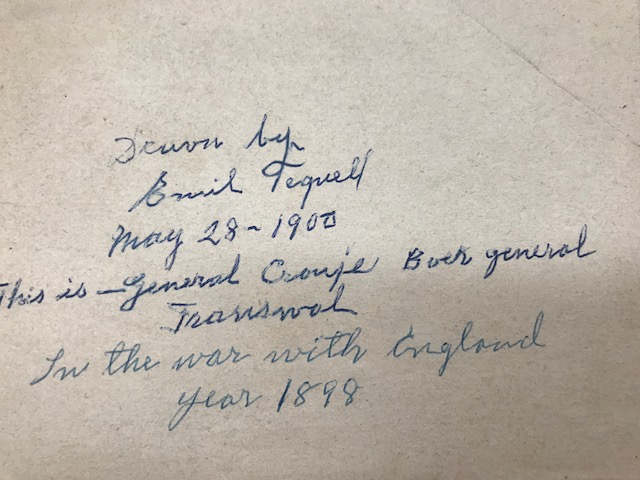 Drawn by
Emil Tequell
May 28-1900
This is - General Croupe Boer general
Transwal
In the war with England
year 1898